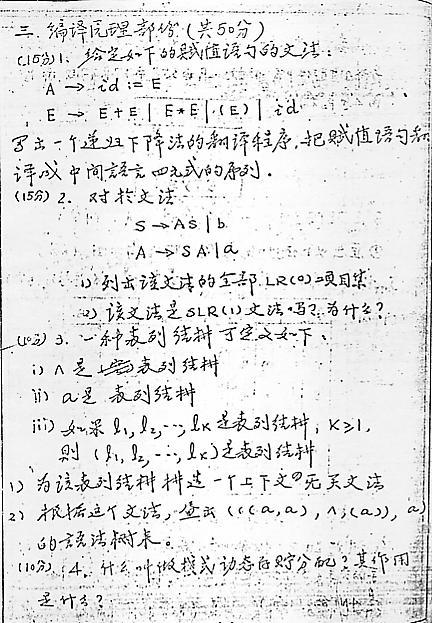 三. 编译原理部份 (共50分)
(15分) 1. 给定如下的赋值语句的文法:
A → id := E
E → E+E | E*E | (E) | id
写出一个递归下降法的翻译程序,把赋值语句翻
译成中间语言四元式的序列.
(15分) 2. 对於文法
S → AS | b
A → SA | a
1) 列出该文法的全部 LR(0) 项目集
2) 该文法是 SLR(1) 文法吗? 为什么?
(10分) 3. 一种表列结构可定义如下:
i) ∧是 表列结构
ii) a是 表列结构
iii) 如果 l1, l2, …, lk 是表列结构, K≥1,
则 (l1, l2, …, lk) 是表列结构
1) 为该表列结构构造一个上下文无关文法
2) 根据这个文法, 画出 (((a,a), ∧, (a)), a)
的语法树来。
(10分) 4. 什么叫做栈式动态存贮分配? 其作用
是什么?